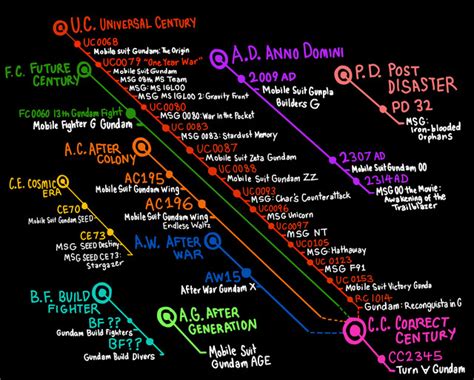 U.C. UNIVERSAL CENTURY
UC0068
Mobile Suit Gundam: The Origin
UC0079 "One Year War"
Mobile Suit Gundam
MSG: 08th MS Team
MSG: MS IGLOO
MSG MS IGLOO 2: Gravity Front
UC0080
MSG 0080: War in the Pocket
UC 0083
MSG 0083: Stardust Memory
UC0087
Mobile Suit Zeta Gundam
UC0088
Mobile Suit Gundam ZZ
UC0093
MSG: Char's Counterattack
UC0096
MSG Unicorn
UC0097
MSG NT
UC0105
MSG: Hathaway
UC 0123
MSG F91
UC 0153
Mobile Suit Victory Gundam
RC 1014
Gundam: Reconguista in G
F.C. FUTURE
CENTURY
FC0060 13th Gundam Fight
Mobile Fighter G Gundam
A.C. AFTER
COLONY
AC195
Mobile Suit Gundam Wing
AC196
Mobile Suit Gundam Wing
Endless Waltz
C.E. COSMIC
ERA
CE70
Mobile Suit Gundam SEED
CE73
MSG SEED Destiny
MSG SEED CE 73:
Stargazer
A.W. AFTER
WAR
AW15
After War Gundam X
B.F. BUILD
FIGHTER
BF??
Gundam Build Fighters
BF??
Gundam Build Divers
A.G. AFTER
GENERATION
Mobile Suit
Gundam AGE
A.D. ANNO DOMINI
2009 AD
Mobile Suit Gunpla
Builders G
2307 AD
Mobile Suit Gundam 00
2314 AD
MSG 00 the Movie:
Awakening of the
Trailblazer
P.D. POST
DISASTER
PD 32
MSG:
Iron-blooded
Orphans
C.C. CORRECT
CENTURY
CC2345
Turn A Gundam